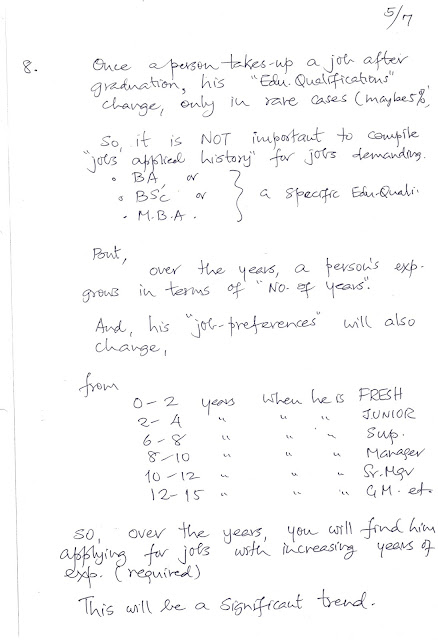 5/7
8. Once a person takes-up a job after
graduation, his "Edu. Qualifications"
change, only in rare cases (maybe 5%)
So, it is NOT important to compile
"jobs applied history" for jobs demanding.
• BA or
• BSc or } a specific Edu-Quali.
• M.B.A.
But,
over the years, a person's exp.
grows in terms of "No. of years".
And, his "job-preferences" will also
change,
from
0-2 years when he is FRESH
2-4 " " " JUNIOR
6-8 " " " Sup.
8-10 " " " Manager
10-12 " " " Sr. Mgr
12-15 " " " G.M. etc
So, over the years, you will find him
applying for jobs with increasing years of
exp. (required)
This will be a significant trend.